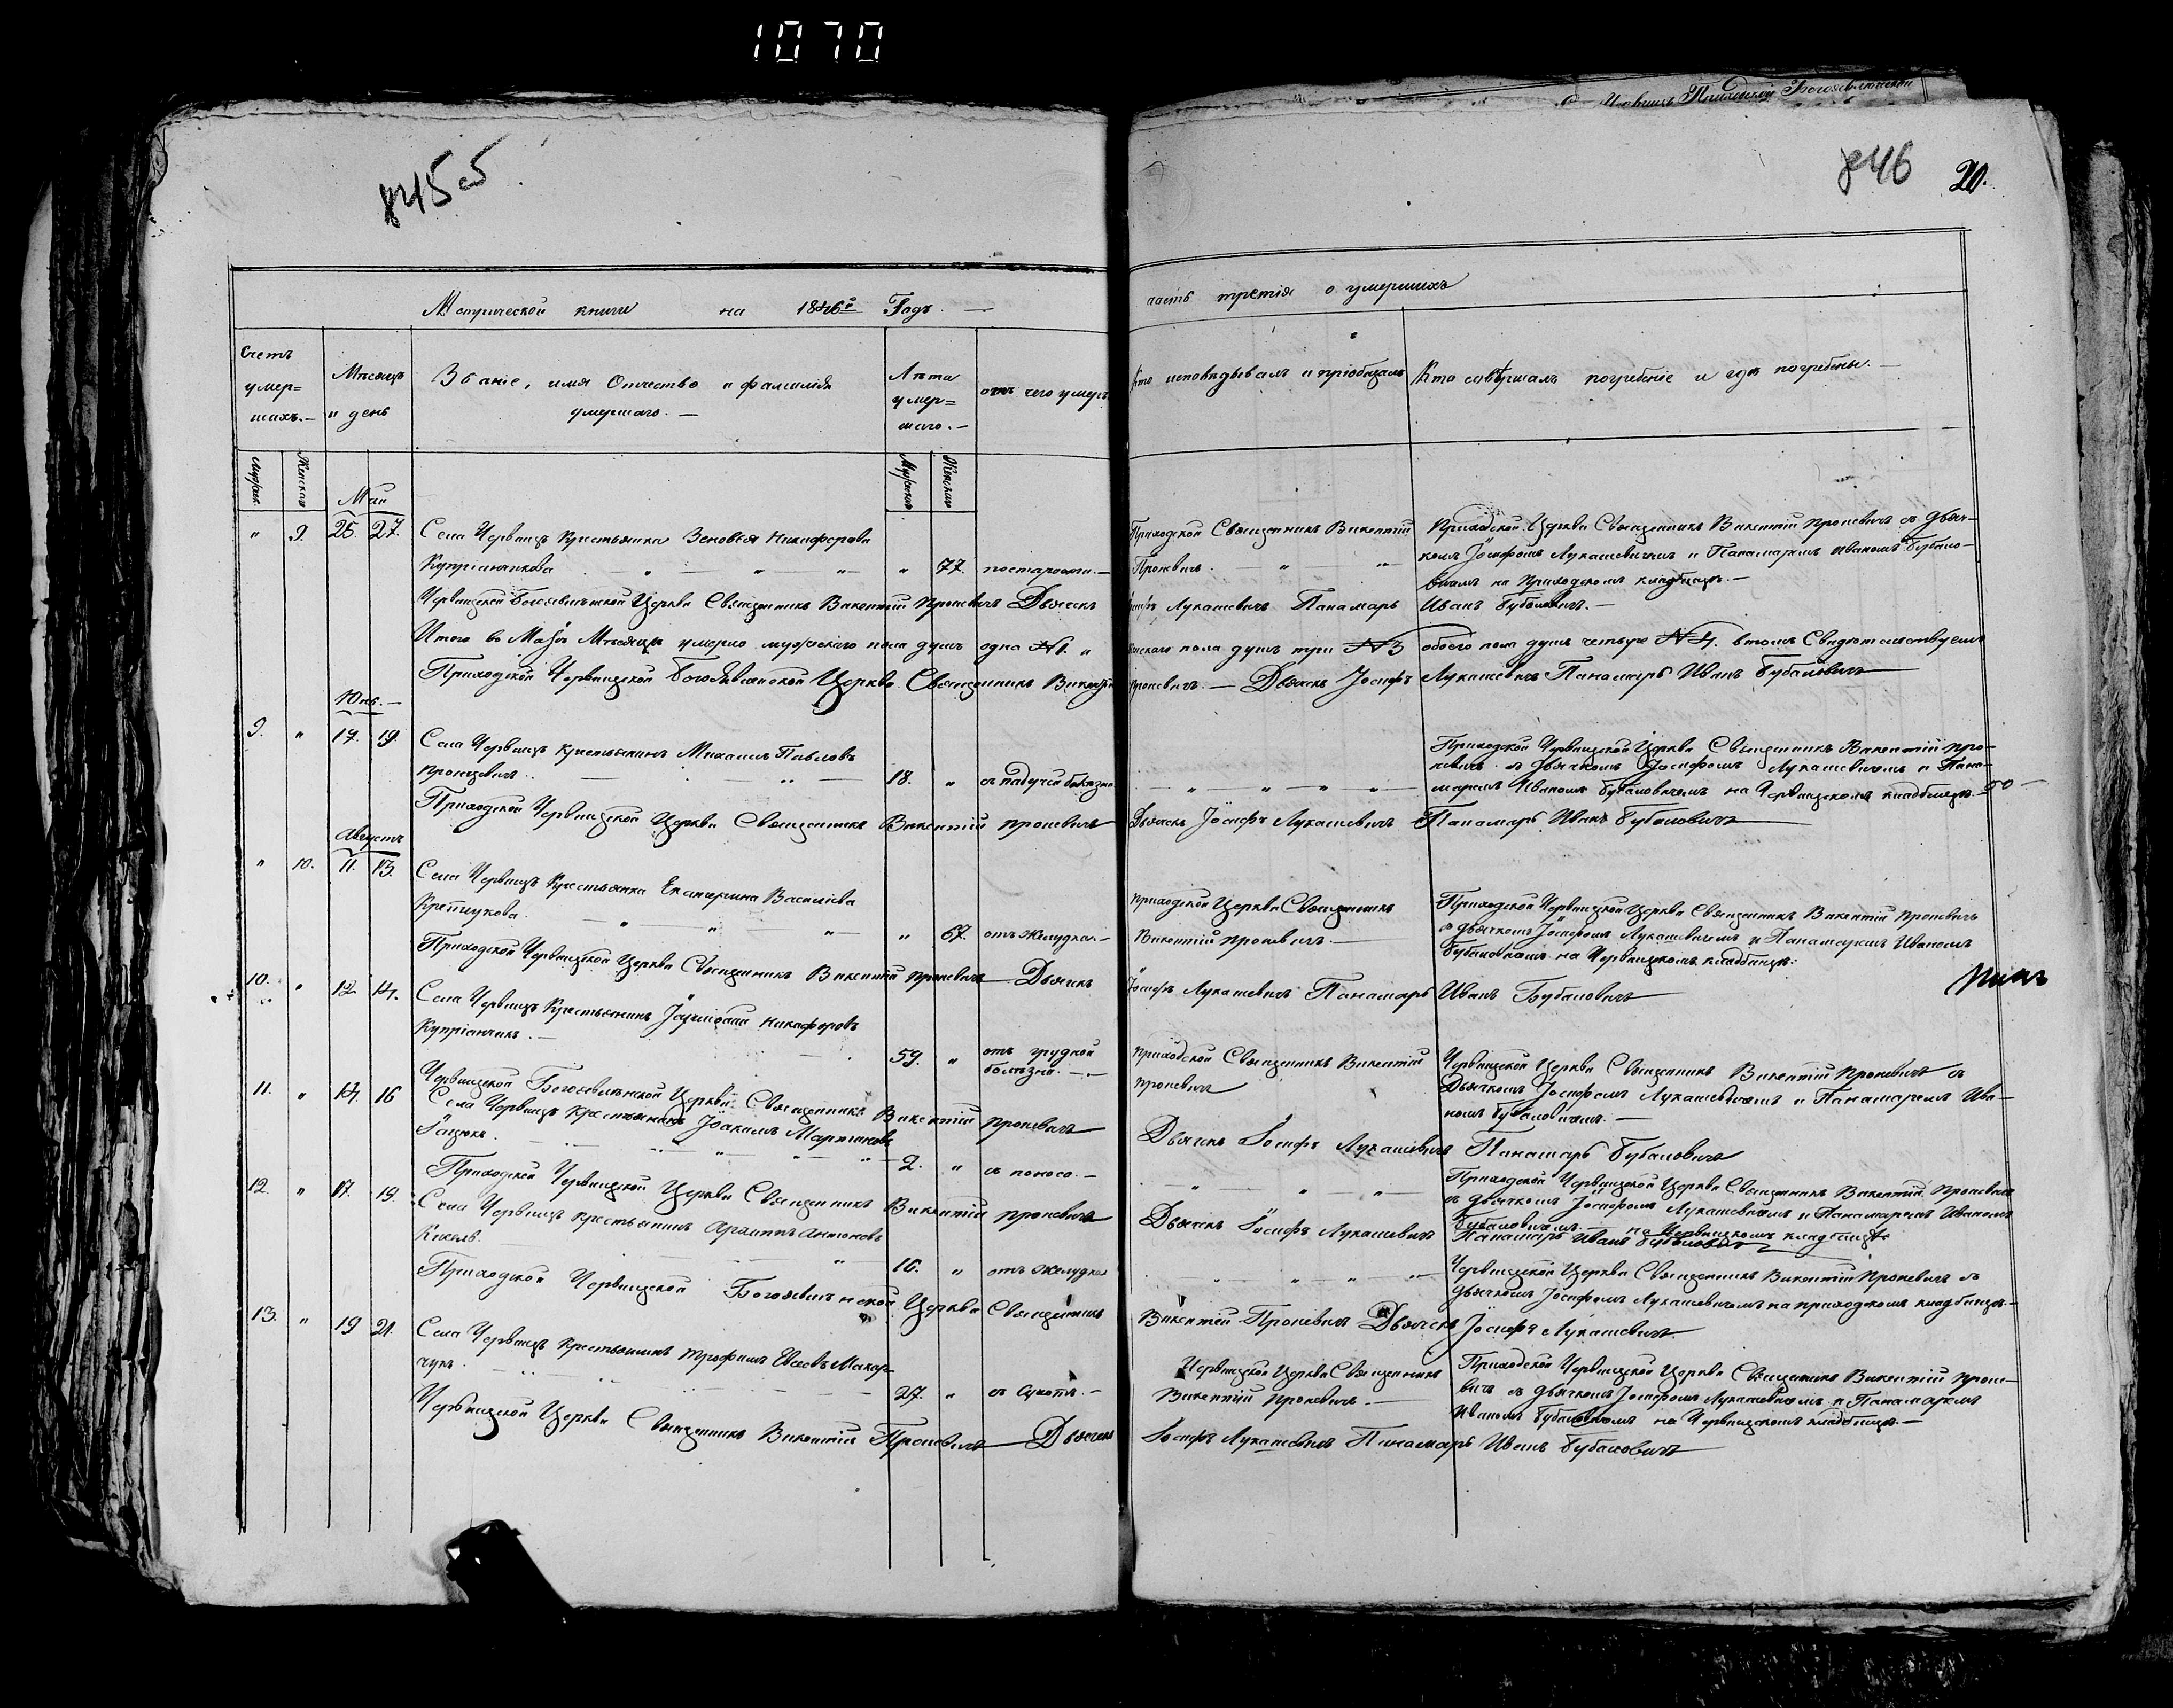 1070
845 об
846
20.
Метрической книги на 1846й Годъ. —
часть третія о умершихъ
Счетъ умер=шихъ. —
Мѣсяцъ и день
Званіе, имя Отчество и фамилія умершаго. —
Лѣта умер=шаго. —
отъ чего умеръ
Кто исповѣдывалъ и пріобщалъ
Кто совершалъ погребеніе и гдѣ погребены. —
Мужеск.
Женскаго
Мужескаго
Женскаго
Маи
" 9. 25. 27. Села Червищъ Крестьянка Зеновія Никифорова
Купріянчикова " 77. постарости. —
Приходской Священникъ Викентій
Проневичъ.
Приходской Церкви Священникъ Викентій Проневичъ съ Дьяч-
комъ Іосифомъ Лукашевичемъ и Панамаремъ Иваномъ Бубано-
вичамъ на Приходскомъ кладбищѣ. —
Червищской Богоявленской Церкви Священникъ Викентій Проневичъ Дьячекъ
Іосифъ Лукашевичъ Панамарь Иванъ Бубановичъ. —
Итого въ Маѣ Мѣсяцѣ умерло мужескаго пола душъ одна №1. "
женскаго пола душъ три №3 обоего пола душъ четыре №4. втомъ Свидѣтелствуемъ
Приходской Червищской Богоявленской Церкви Священникъ Викентій
Проневичъ. — Дьячекъ Іосифъ Лукашевичъ Панамарь Иванъ Бубановичъ
Юнь. —
9. " 17. 19. Села Червищъ Крестьянинъ Михаилъ Павловъ
Проневичъ. 18. " съ падучей болезни
Приходской Червищской Церкви Священникъ Викентій Про-
невичъ съ Дьячкомъ Іосифомъ Лукашевичемъ и Пана-
маремъ Иваномъ Бубановичемъ на Червищскомъ кладбищѣ.
Приходской Червищской Церкви Священникъ Викентій Проневичъ
Дьячекъ Іосифъ Лукашевичъ Панамарь Иванъ Бубановичъ
Августъ
" 10. 11. 13. Села Червищъ Крестьянка Екатерина Василіева
" 67. отъ желудка. —
Приходской Церкви Священникъ
Викентій Проневичъ. —
Приходской Червищской Церкви Священникъ Викентій Проневичъ
съ Дьячкомъ Іосифомъ Лукашевичемъ и Панамаремъ Иваномъ
Бубановичамъ на Червищскомъ кладбищѣ.
Приходской Червищской Церкви Священникъ Викентій Проневичъ — Дьячекъ
Іосифъ Лукашевичъ Панамарь Иванъ Бубановичъ
10. " 12. 14. Села Червищъ Крестьянинъ Никифоровъ
Купріянчикъ. —
59. " отъ грудной
болѣзни. —
Приходской Священникъ Викентій
Проневичъ
Червищской Церкви Священникъ Викентій Проневичъ съ
Дьячкомъ Іосифомъ Лукашевичемъ и Панамаремъ Ива-
номъ Бубановичемъ. —
Червищской Богоявленской Церкви Священникъ Викентій Проневичъ
Дьячекъ Іосифъ Лукашевичъ Панамарь Бубановичъ
11. " 14. 16 Села Червищъ Крестьянинъ Іоакимъ Мартиновъ
2. " съ поносо. —
Приходской Червищской Церкви Священникъ Викентій Проневичъ
съ Дьячкомъ Іосифомъ Лукашевичемъ и Панамаремъ Иваномъ
Бубановичемъ. — на Червищскомъ кладбищѣ
Приходской Червищской Церкви Священникъ Викентій Проневичъ
Дьячекъ Іосифъ Лукашевичъ Панамарь Иванъ Бубановичъ
12. " 17. 19. Села Червищъ Крестьянинъ Архипъ Антоновъ
16. " отъ желудка
Червищской Церкви Священникъ Викентій Проневичъ съ
Дьячкомъ Іосифомъ Лукашевичемъ на приходскомъ кладбищѣ. —
Приходской Червищской Богоявленской Церкви Священникъ
Викентій Проневичъ Дьячекъ Іосифъ Лукашевичъ
13. " 19 21. Села Червищъ Крестьянинъ Трофимъ Евсеевъ Макар-
чукъ.
27. " съ сухотъ. —
Червищской Церкви Священникъ
Викентій Проневичъ. —
Приходской Червищской Церкви Священникъ Викентій Проне-
вичъ съ Дьячкомъ Іосифомъ Лукашевичемъ и Панамаремъ
Иваномъ Бубановичемъ на Червищскомъ кладбищѣ. —
Червищской Церкви Священникъ Викентій Проневичъ — Дьячекъ
Іосифъ Лукашевичъ Панамарь Иванъ Бубановичъ